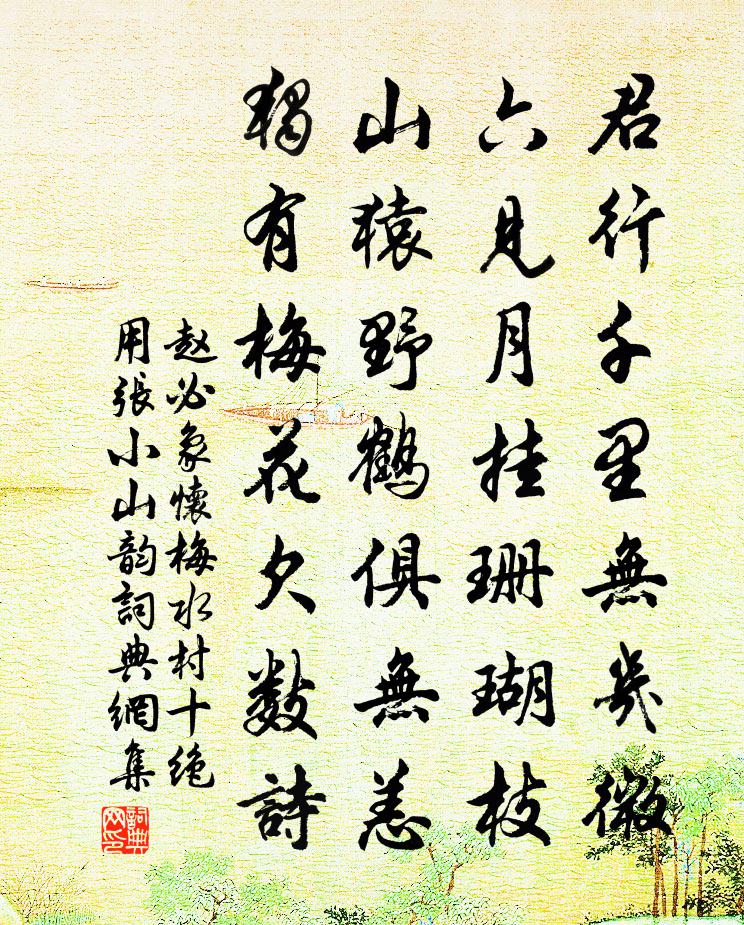 君行千里無幾微
六見月挂珊瑚枝
山猿野鶴俱無恙
獨有梅花欠數詩
赵必象懷梅水村十绝
用張小山韵詞典網集
詞典网印